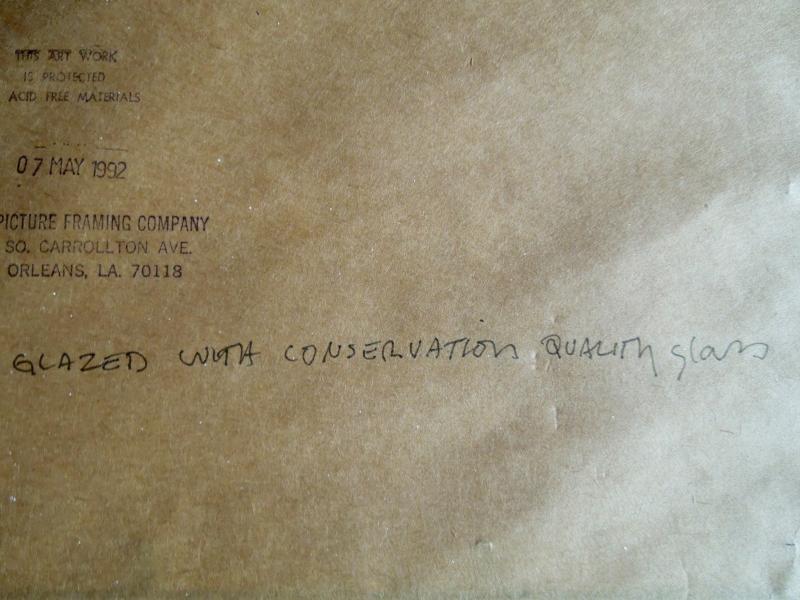 THIS ART WORK
IS PROTECTED
ACID FREE MATERIALS
07 MAY 1992
PICTURE FRAMING COMPANY
SO. CARROLLTON AVE.
ORLEANS, LA. 70118
GLAZED WITH CONSERVATION QUALITY glass